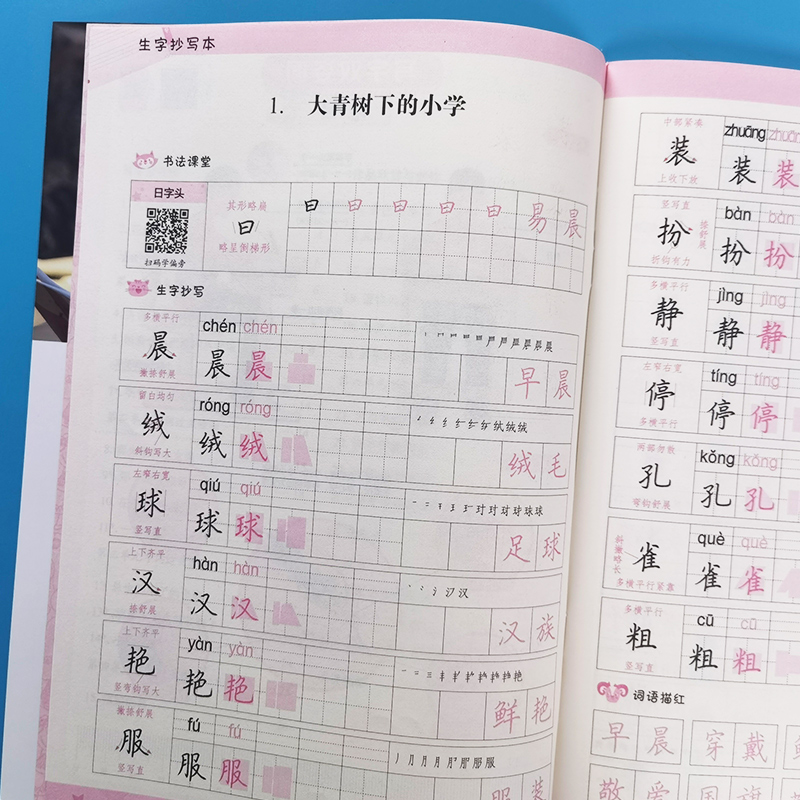 生字抄写本
1. 大青树下的小学
书法课堂
日字头
扫码学偏旁
其形略扁
曰
略呈倒梯形
曰 曰 曰 曰 曰 易 晨
生字抄写
多横平行
晨
撇捺舒展
chén chén
晨 晨
早 晨
留白均匀
绒
斜钩写大
róng róng
绒 绒
绒 毛
左窄右宽
球
竖写直
qiú qiú
球 球
足 球
上下齐平
汉
捺舒展
hàn hàn
汉 汉
汉 族
上下齐平
艳
竖弯钩写大
yàn yàn
艳 艳
鲜 艳
撇捺舒展
服
竖写直
fú fú
服 服
服 装
中部紧凑
装
上收下放
zhuāng zhuāng
装 装
竖写直
扮
捺舒展
折钩有力
bàn bàn
扮 扮
多横平行
静
竖写直
jìng jìng
静 静
左窄右宽
停
多横平行
tíng tíng
停 停
孔
弯钩舒展
kǒng kǒng
孔 孔
斜撇略长
雀
多横平行紧靠
què què
雀 雀
多横平行
粗
竖写直
cū cū
粗 粗
词语描红
早 晨 穿 戴
敬 爱 国 旗